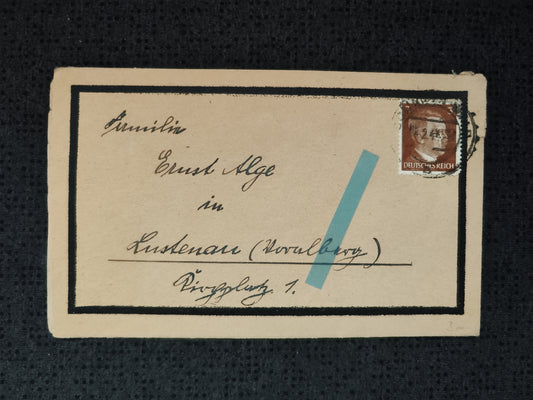 Familie
Ernst Alge
in
Lustenau (Voralberg)
Kirchplatz 1.
DEUTSCHES REICH